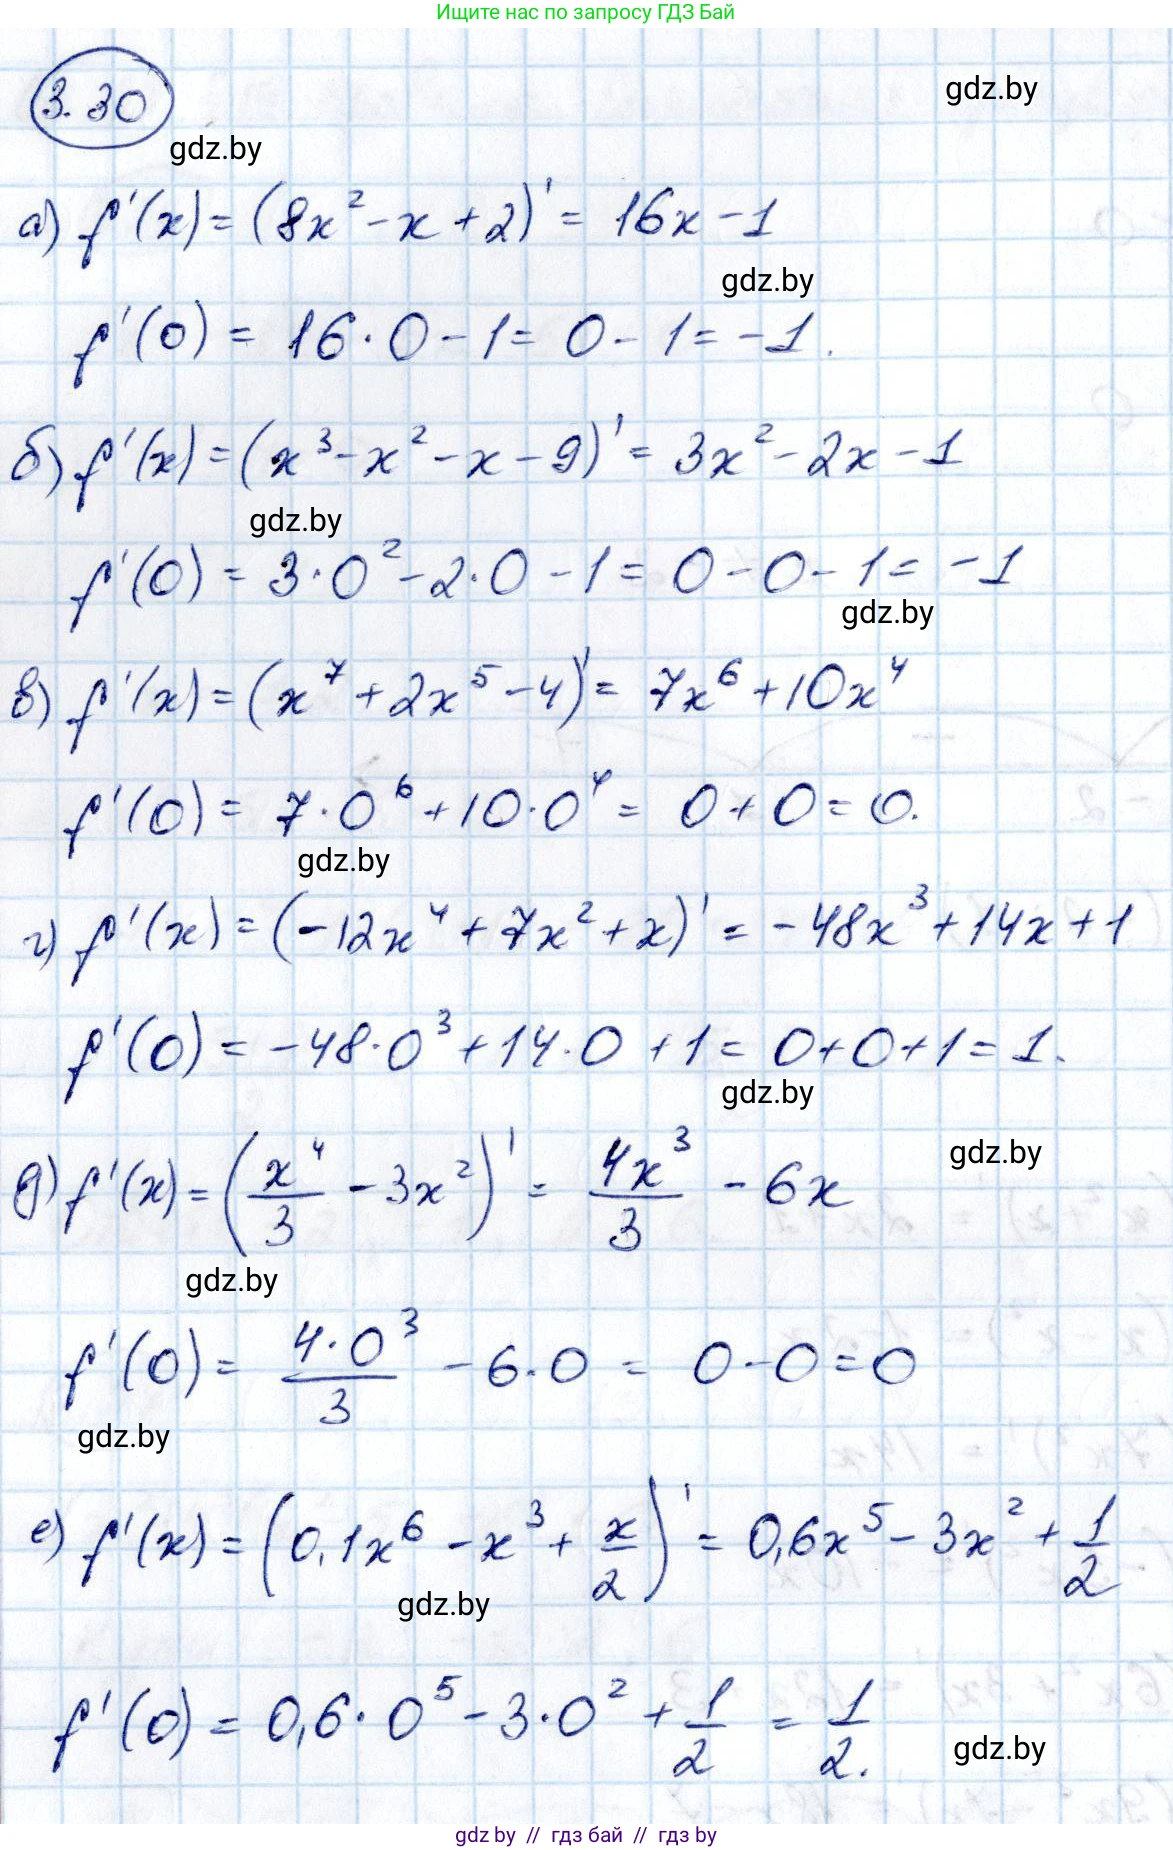 Ищите нас по запросу ГДЗ Бай
3.30
gdz.by
gdz.by
а) f'(x) = (8x² - x + 2)' = 16x - 1
gdz.by
f'(0) = 16 · 0 - 1 = 0 - 1 = -1.
б) f'(x) = (x³ - x² - x - 9)' = 3x² - 2x - 1
gdz.by
f'(0) = 3 · 0² - 2 · 0 - 1 = 0 - 0 - 1 = -1
gdz.by
в) f'(x) = (x⁷ + 2x⁵ - 4)' = 7x⁶ + 10x⁴
f'(0) = 7 · 0⁶ + 10 · 0⁴ = 0 + 0 = 0.
gdz.by
г) f'(x) = (-12x⁴ + 7x² + x)' = -48x³ + 14x + 1
f'(0) = -48 · 0³ + 14 · 0 + 1 = 0 + 0 + 1 = 1.
gdz.by
gdz.by
д) f'(x) = (x⁴/3 - 3x²)' = 4x³/3 - 6x
gdz.by
f'(0) = 4 · 0³/3 - 6 · 0 = 0 - 0 = 0
gdz.by
е) f'(x) = (0,1x⁶ - x³ + x/2)' = 0,6x⁵ - 3x² + 1/2
gdz.by
f'(0) = 0,6 · 0⁵ - 3 · 0² + 1/2 = 1/2.
gdz.by
gdz by // гдз бай // гдз by